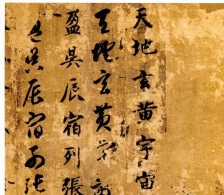 天地玄黄宇宙
天地玄黄
盈昃辰宿列張
昃辰宿列張